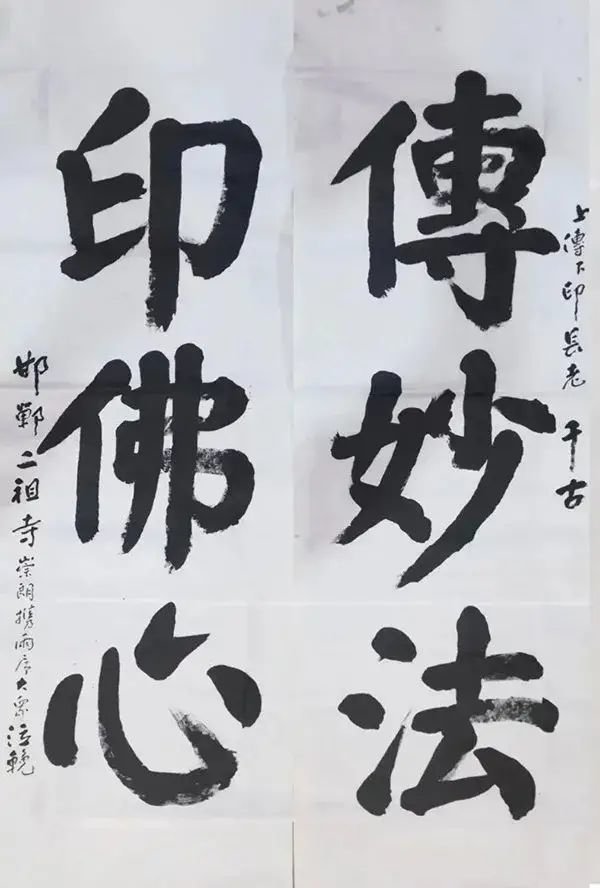 上傳下印長老 千古
傳妙法
印佛心
邯鄲二祖寺崇朗携兩序大眾泣輓